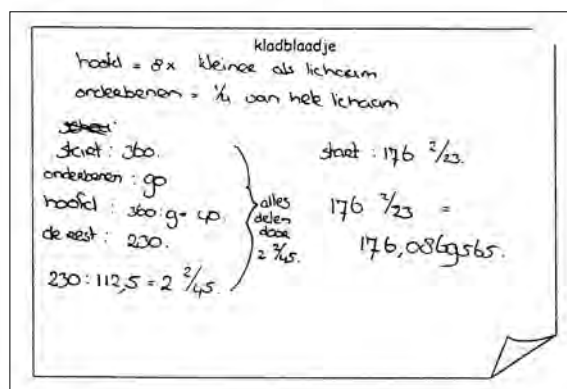 kladblaadje
hoofd = 8x kleiner als lichaam
onderbenen = 1/4 van hele lichaam
start : 360.
onderbenen : 90
hoofd : 360:9= 40.
de rest : 230.
230:112,5 = 2 2/45.
alles
delen
door
2 2/45.
start : 176 2/23.
176 2/23 =
176,0869565.